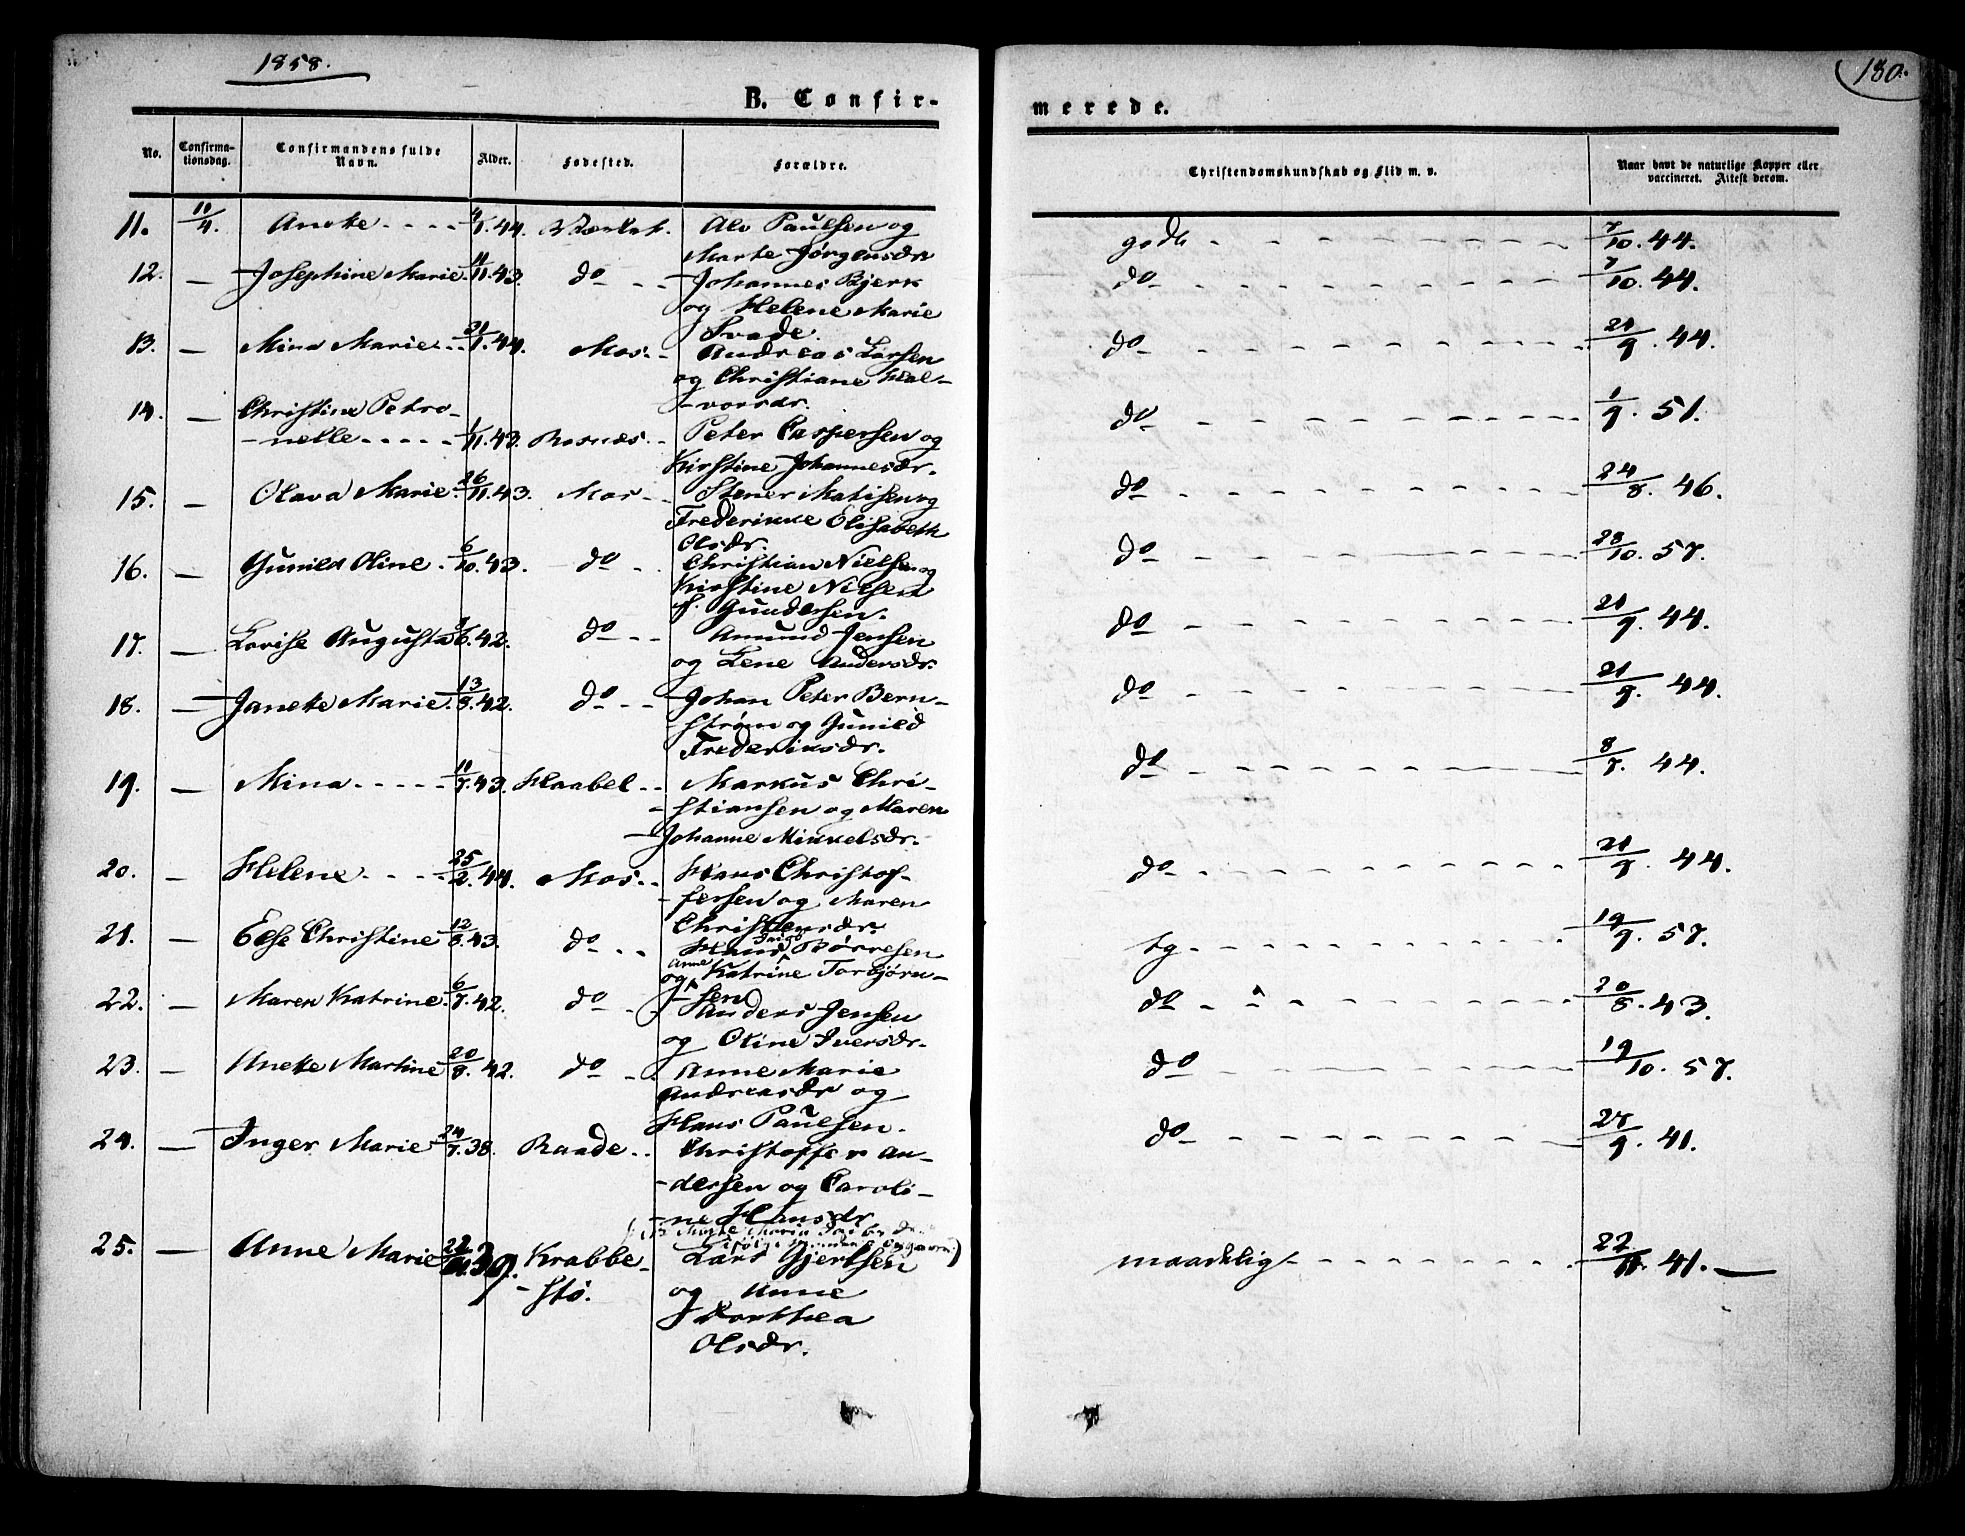 1858.
180.
B. Confir-
merede.
No.
Confirma-
tionsdag.
Confirmandens fulde
Navn.
Alder.
Fødested.
Forældre.
Christendomskundskab og Flid m. v.
Naar havt de naturlige Kopper eller
vaccineret. Attest derom.
11. 11/4. Anette - - - - 4/1. 44. Alv Paulsen og
Marte Jørgensdr godt - - - 7/10. 44.
12. — Josephine Marie. 11/11. 43. do - - Johannes Bjerk
og Helene Marie
Svade. do - - - 7/10. 44.
13. — Mina Marie. - - 21/1. 44. Mos. - Andreas Larsen
og Christiane Hal-
-vorsdr. do - - - 21/9. 44.
14. — Christine Petro-
-nelle - - - - - 1/11. 43. Rosnæs. - Peter Caspersen og
Kirstine Johannesdr. do - - - 1/9. 51.
15. — Olava Marie. 26/11. 43. Mos - - Stener Matisen og
Frederikke Elisabeth
Olsdr. do - - - 24/8. 46.
16. — Gunild Oline. 6/10. 43. do - - Christian Nielsen og
Kirstine Nielsen
f. Gundersen. do - - - 28/10. 57.
17. — Lovise Augusta /6. 42. do - - Amund Jensen
og Lene Andersdr. do - - - 21/9. 44.
18. — Janette Marie. 13/8. 42. do - - Johan Peter Bern-
-strøm og Gunild
Frederiksdr. do - - - 21/9. 44.
19. — Mina - - - - - 11/7. 43. Haabel - - Markus Chri-
-stiansen og Maren
Johanne Mikkelsdr. do - - - 8/7. 44.
20. — Helene - - - - 25/2. 44. Mos. - Hans Christof-
-fersen og Maren
Christensdr. do - - - 21/9. 44.
21. — Else Christine 12/8. 43. do - - Hans Børresen
og Anne Katrine Torbjørn-
-sen tg - - - 19/9. 57.
22. — Maren Katrine. 6/7. 42. do - - Anders Jensen
og Oline Iversdr. do - - - 20/8. 43.
23. — Anette Martine 20/8. 42. do - - Anne Marie
Andreasdr og
Hans Paulsen. do - - - 19/10. 57.
24. — Inger Marie 24/7. 38. Raade. - Christoffer An-
-dersen og Caroli-
-ne Hansdr do - - - 27/9. 41.
25. — Anne Marie 39. Krabbe-
-stø. Lars Gjertsen
og Anne
Dorthea
Olsdr. maadelig - - - 22/11. 41. —